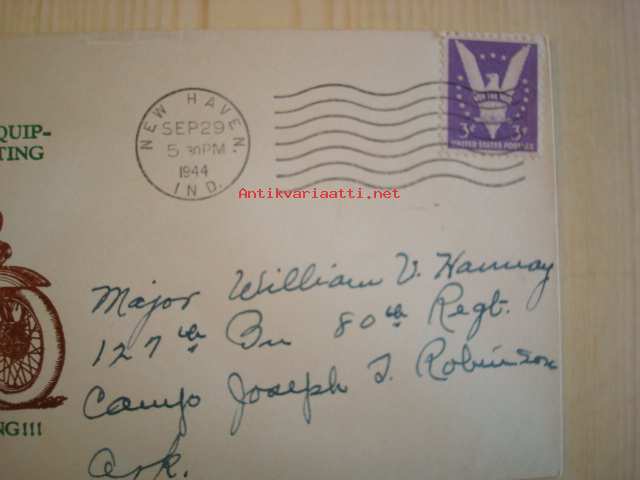 QUIP-
TING
NEW HAVEN.
SEP 29
5 30 PM
1944
IND.
WIN THE WAR
3¢ 3¢
UNITED STATES POSTAGE
Antikvariaatti.net
Major William V. Hannay
127th Bn 80th Regt.
Camp Joseph T. Robinson
Ark.
NG!!!